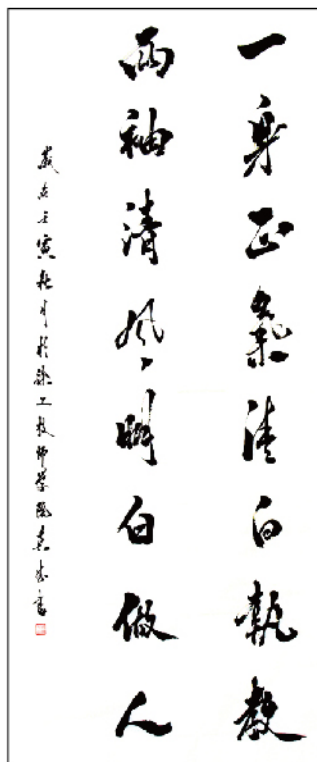 一身正氣清白執教
兩袖清風明白做人
歲在壬寅秋月於徐工技師學院